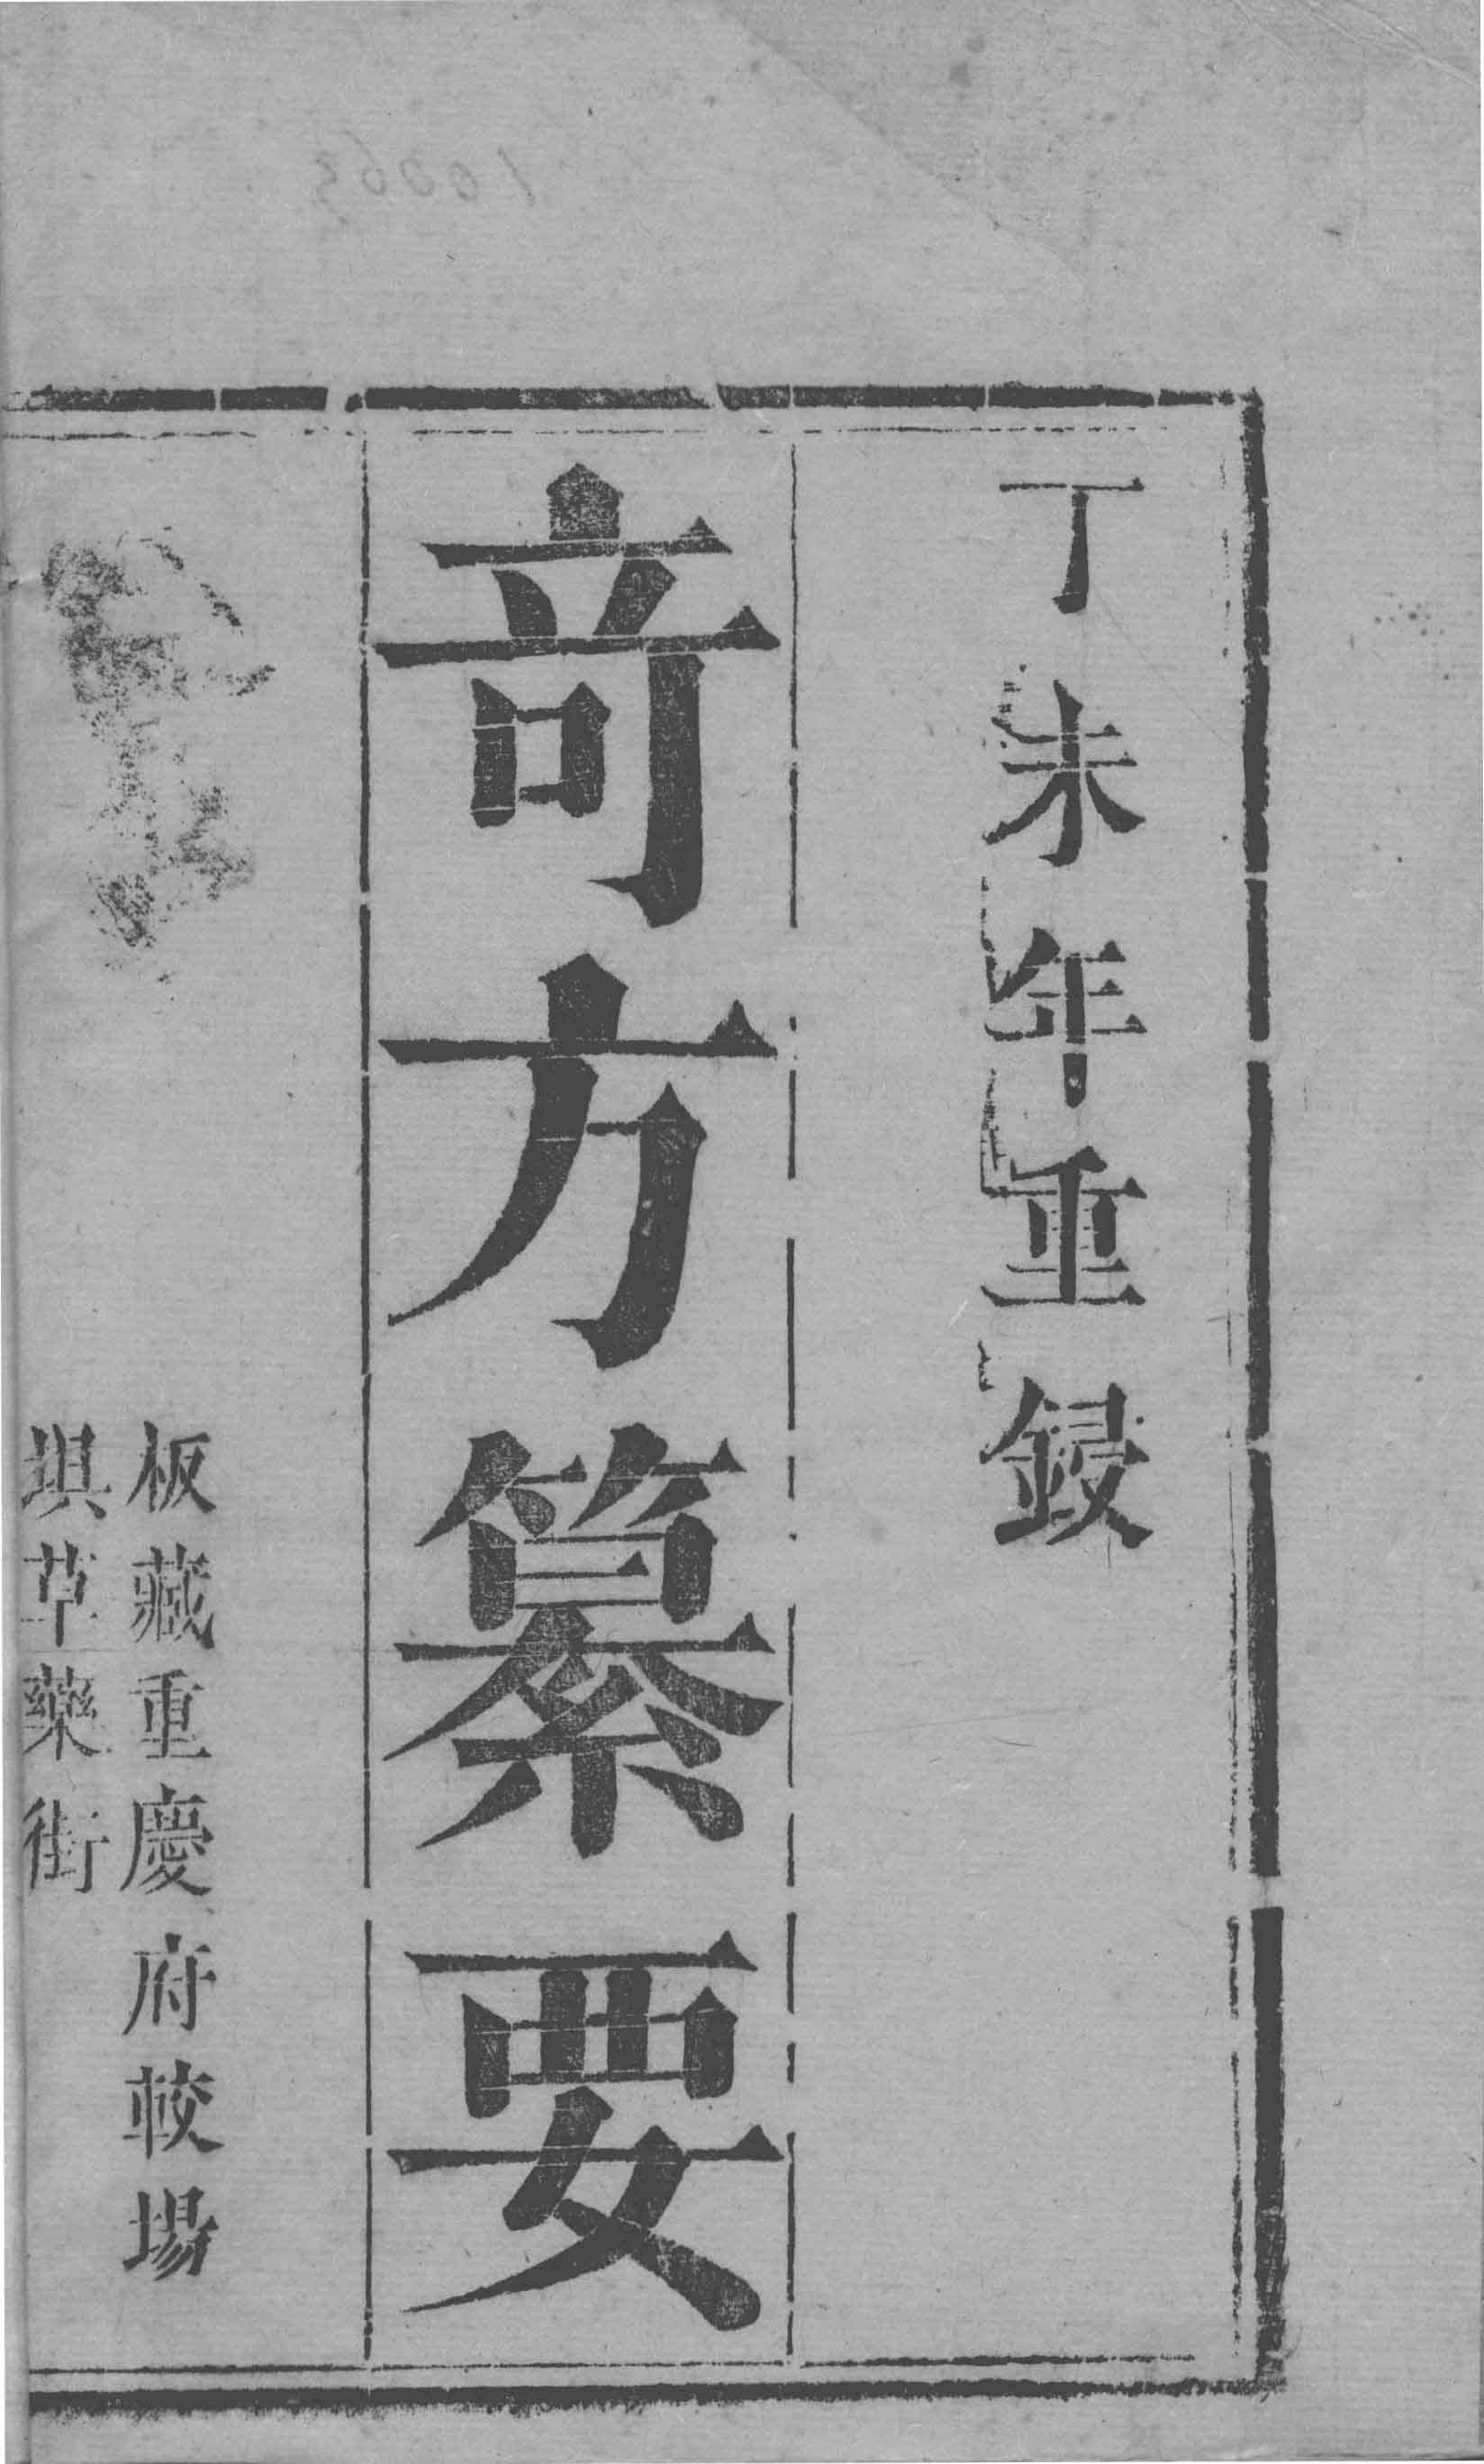 丁未年重鋟
竒方纂要
板藏重慶府較場
垻草藥街